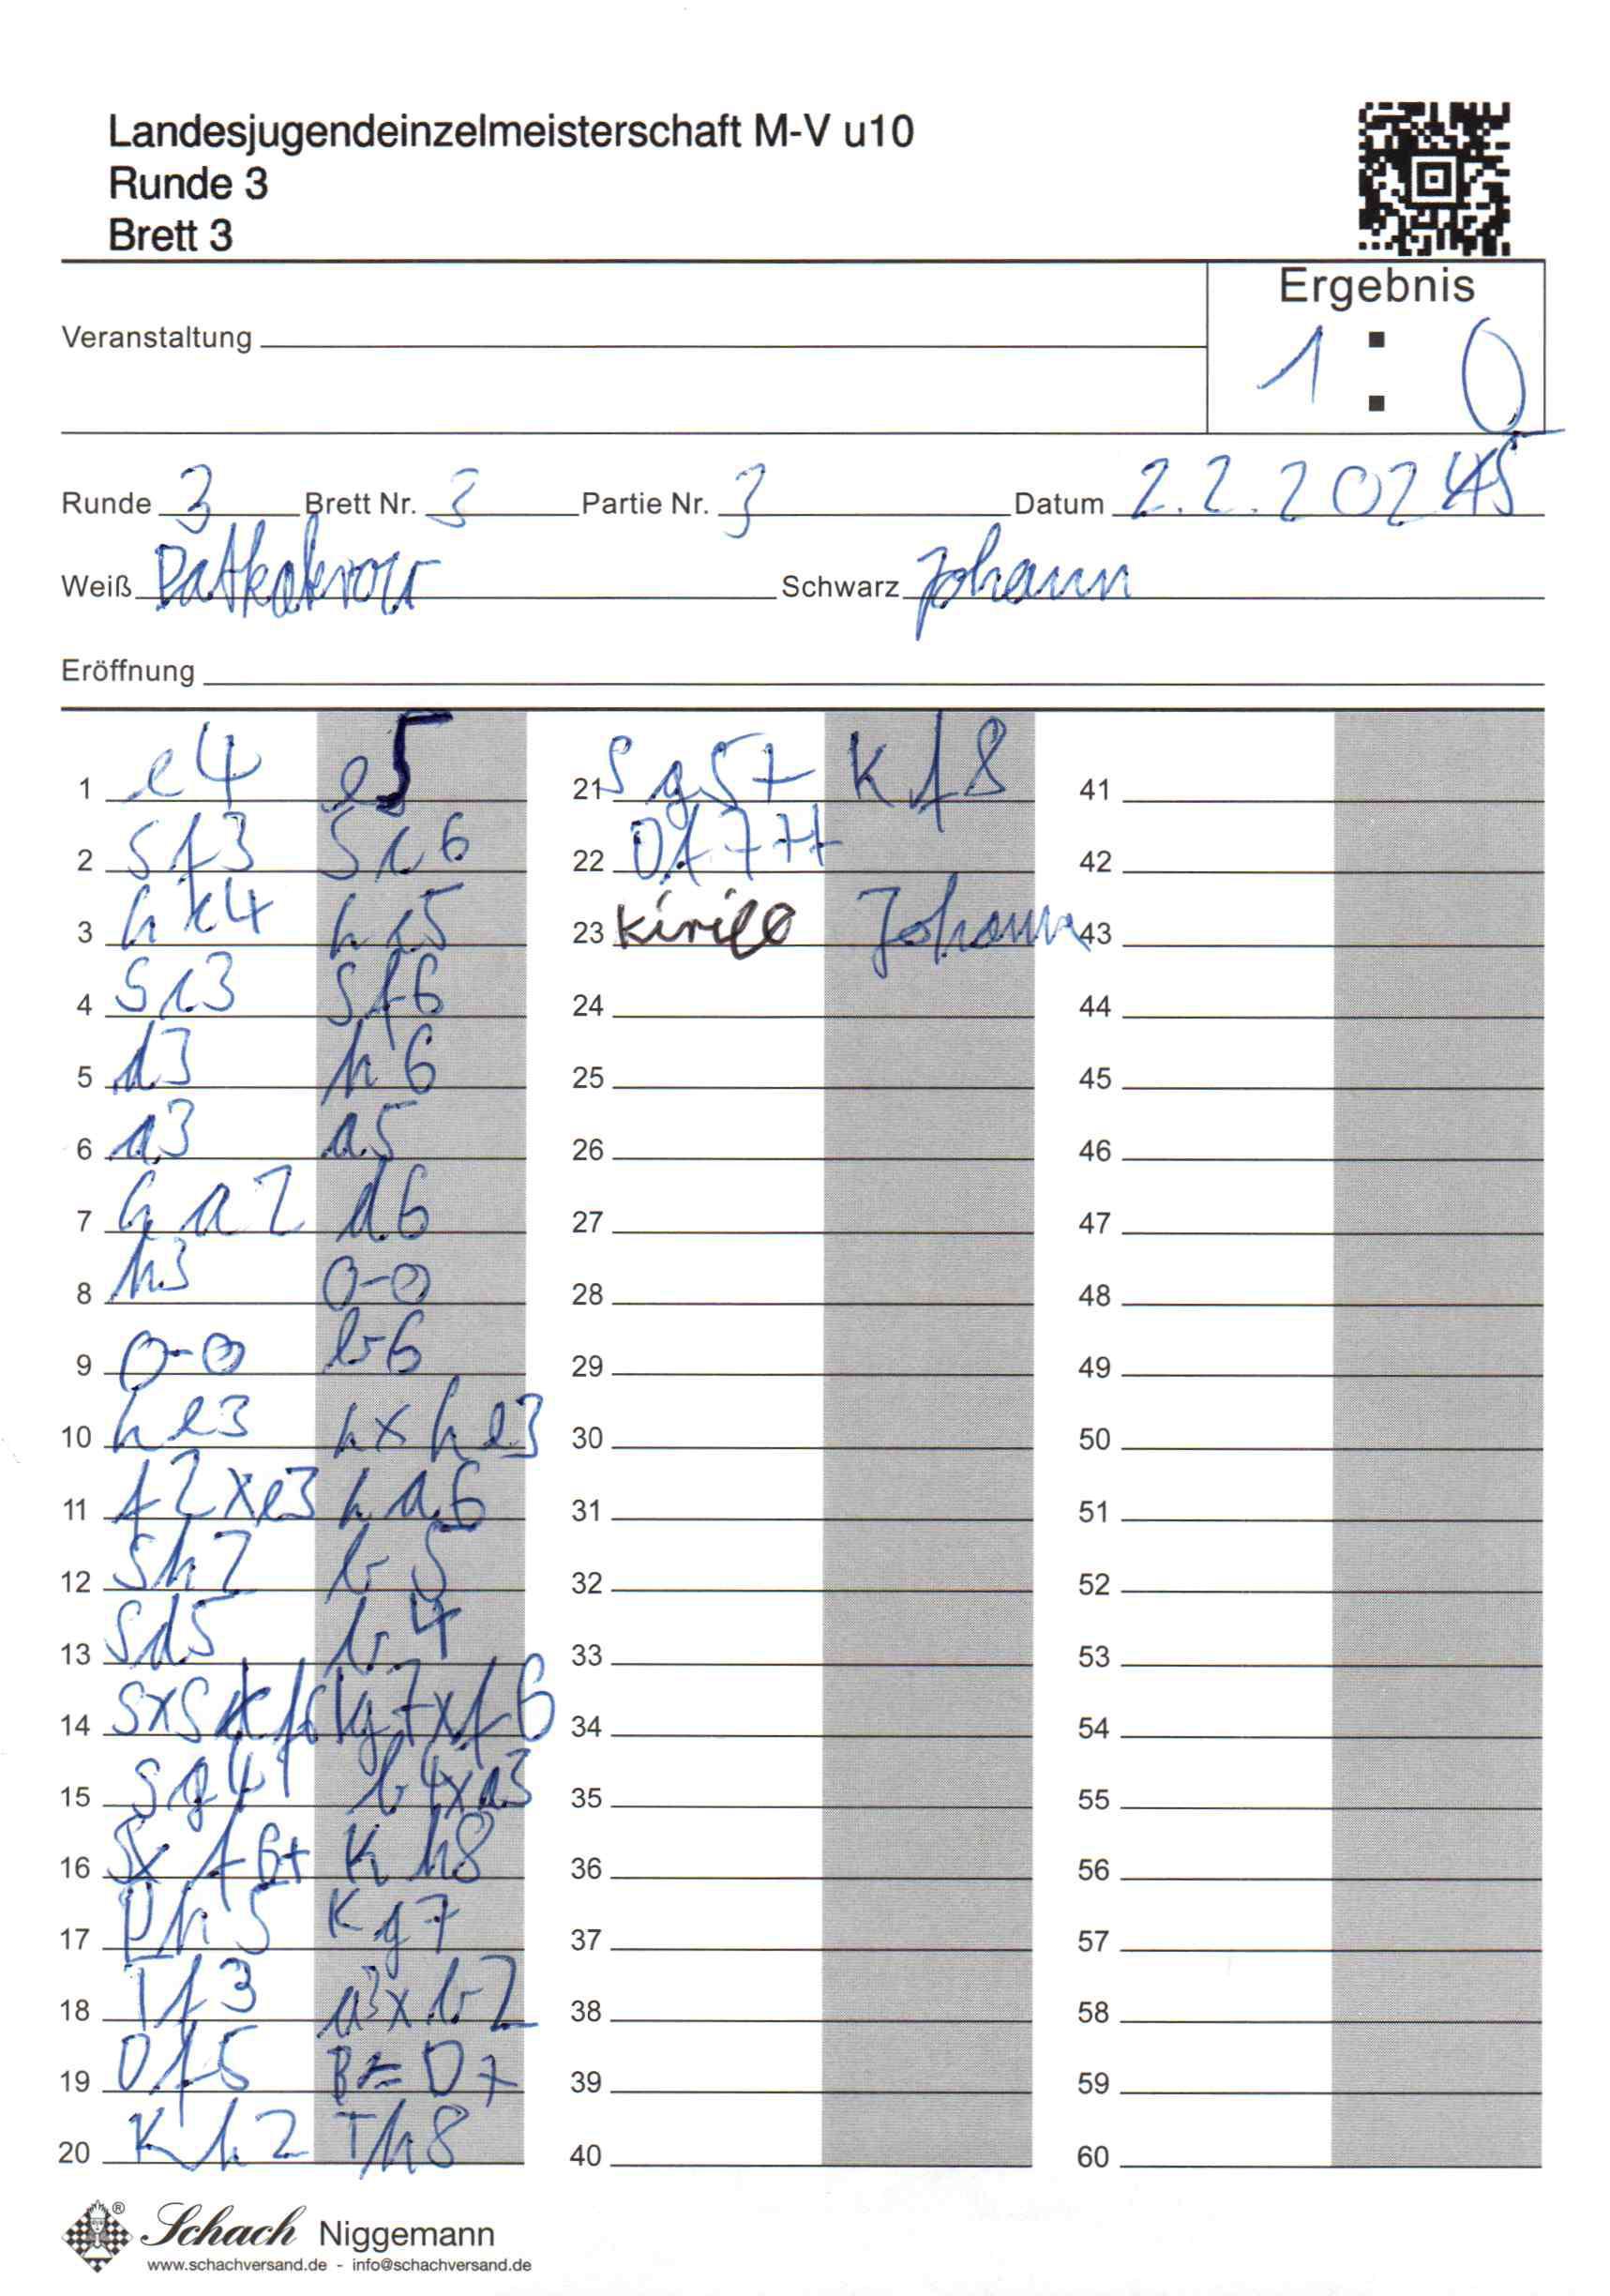 Landesjugendeinzelmeisterschaft M-V u10
Runde 3
Brett 3
Ergebnis
Veranstaltung
1 : 0
Runde 3 Brett Nr. 3 Partie Nr. 3 Datum 2.2.2025
Weiß Schwarz Johann
Eröffnung
1 e4 e5 21 Sg5+ Kf8 41
2 Sf3 Sc6 22 Df7++ 42
3 hc4 hc5 23 Kirill Johann 43
4 Sc3 Sf6 24 44
5 d3 h6 25 45
6 a3 a5 26 46
7 ha2 d6 27 47
8 h3 0-0 28 48
9 0-0 b6 29 49
10 he3 hxhe3 30 50
11 f2xe3 ha6 31 51
12 Sh2 b5 32 52
13 Sd5 b4 33 53
14 SxSf6 g7xf6 34 54
15 Sg4 b4xa3 35 55
16 Sxf6+ Kh8 36 56
17 Dh5 Kg7 37 57
18 Tf3 a3xb2 38 58
19 Df5 B=D+ 39 59
20 Kh2 Th8 40 60
Schach Niggemann
www.schachversand.de - info@schachversand.de